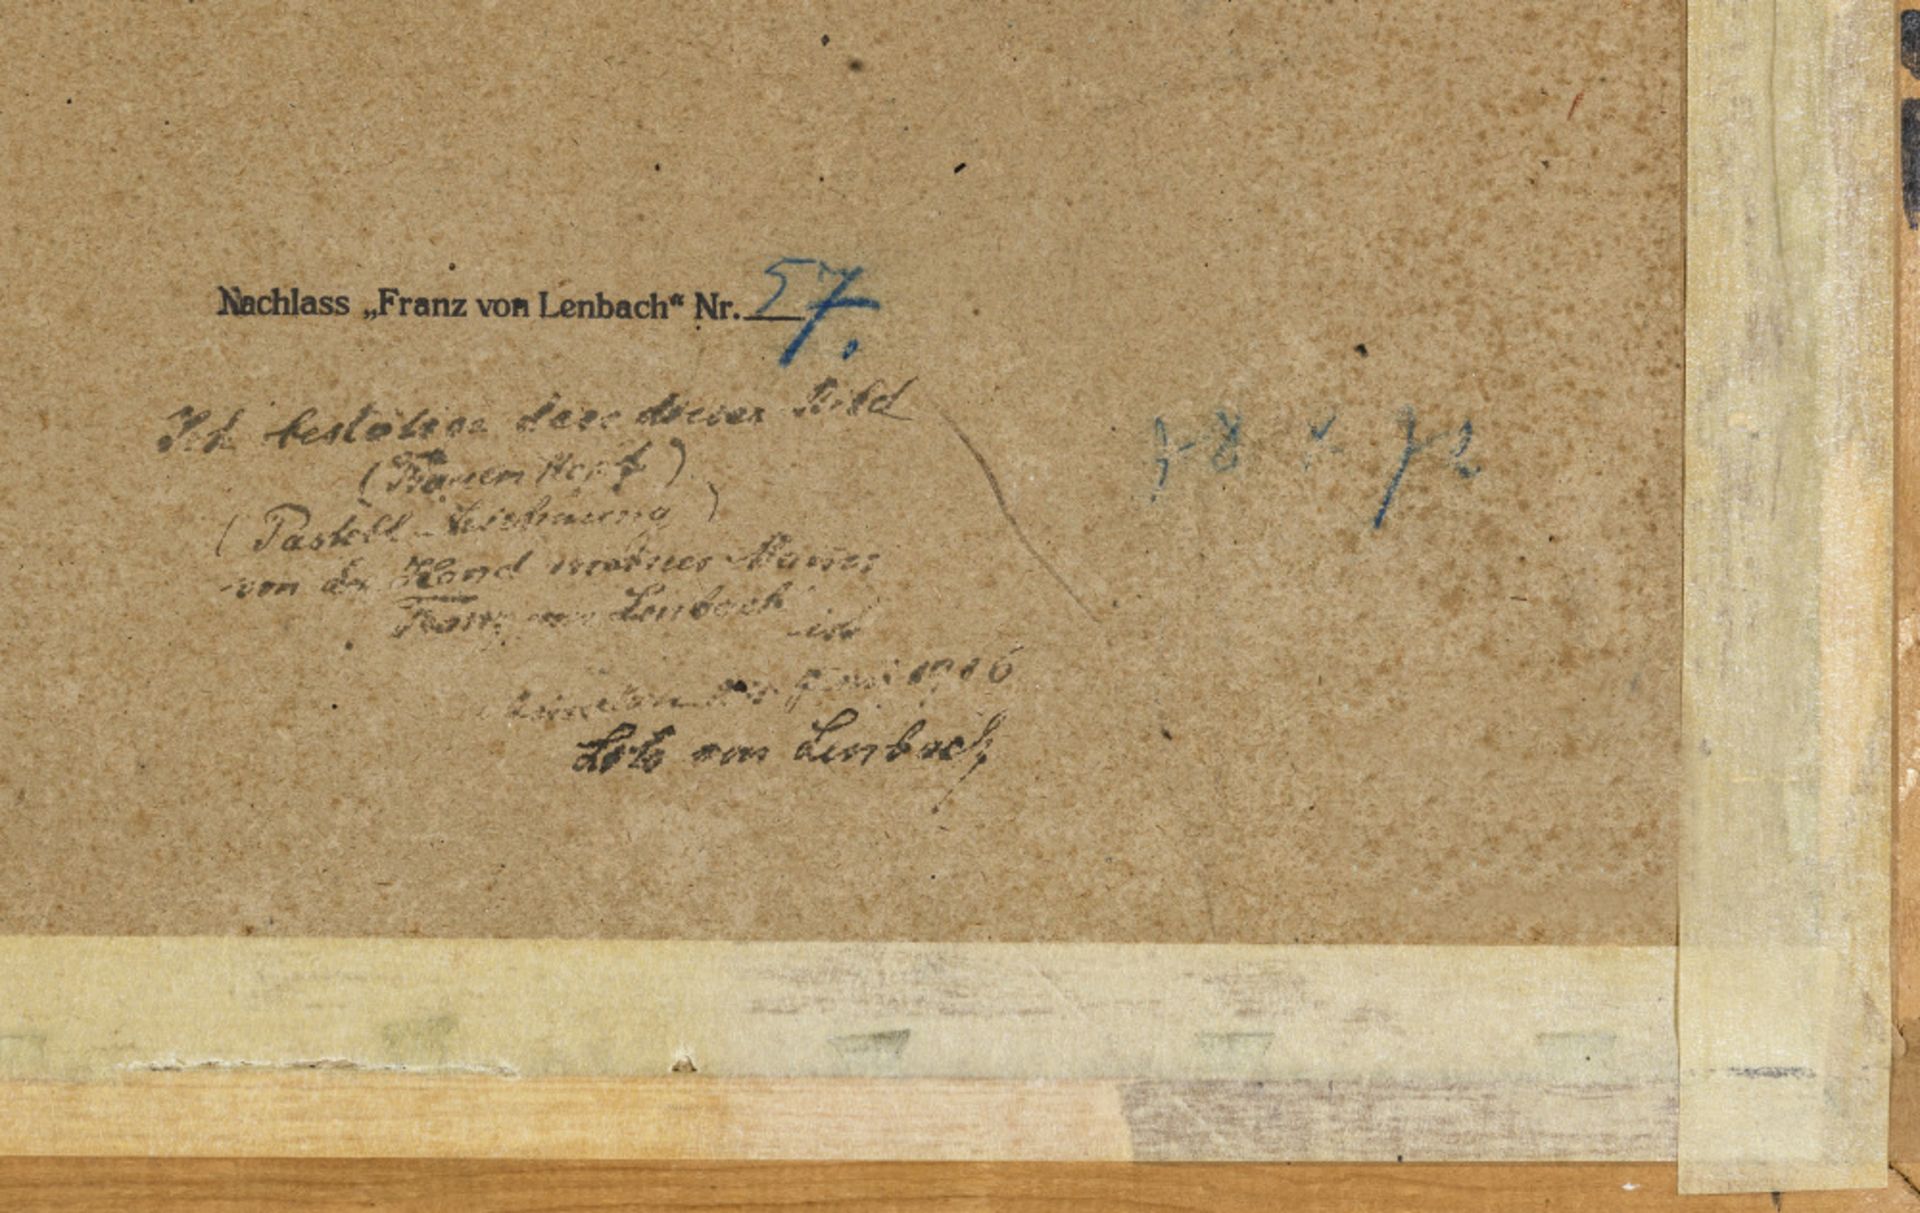 Nachlass „Franz von Lenbach“ Nr. 57.
Ich bestätige dass dieses Bild
(Frauenkopf)
(Pastell-Zeichnung)
von der Hand meines Mannes
Franz von Lenbach
ist
Juni 1916
Lolo von Lenbach